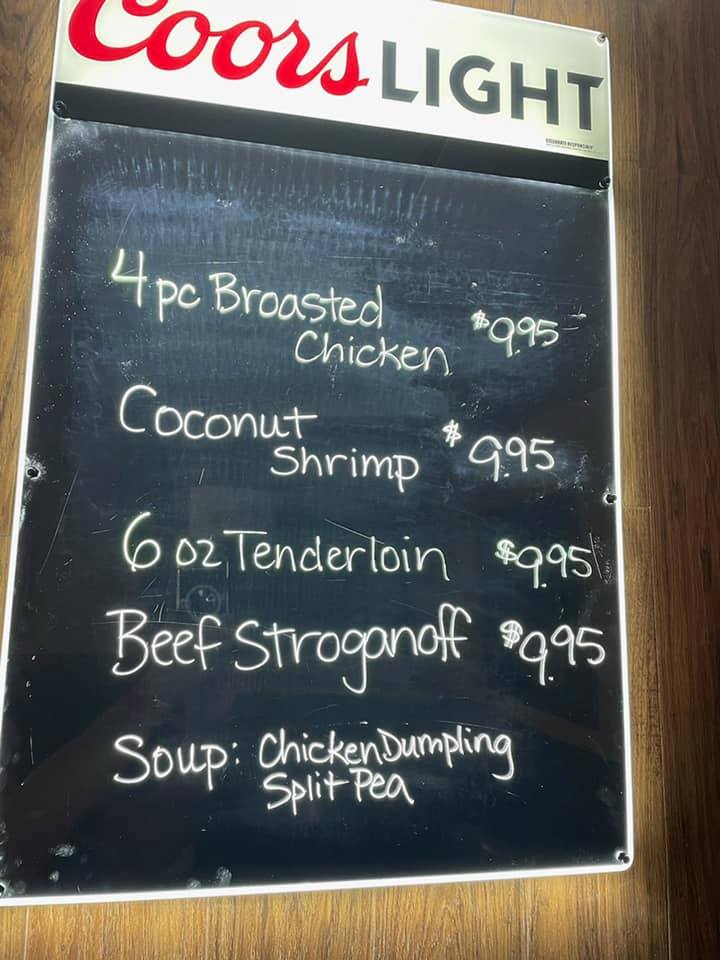 Coors LIGHT
4 pc Broasted
Chicken $9.95
Coconut
Shrimp $9.95
6 oz Tenderloin $9.95
Beef Stroganoff $9.95
Soup: Chicken Dumpling
Split Pea